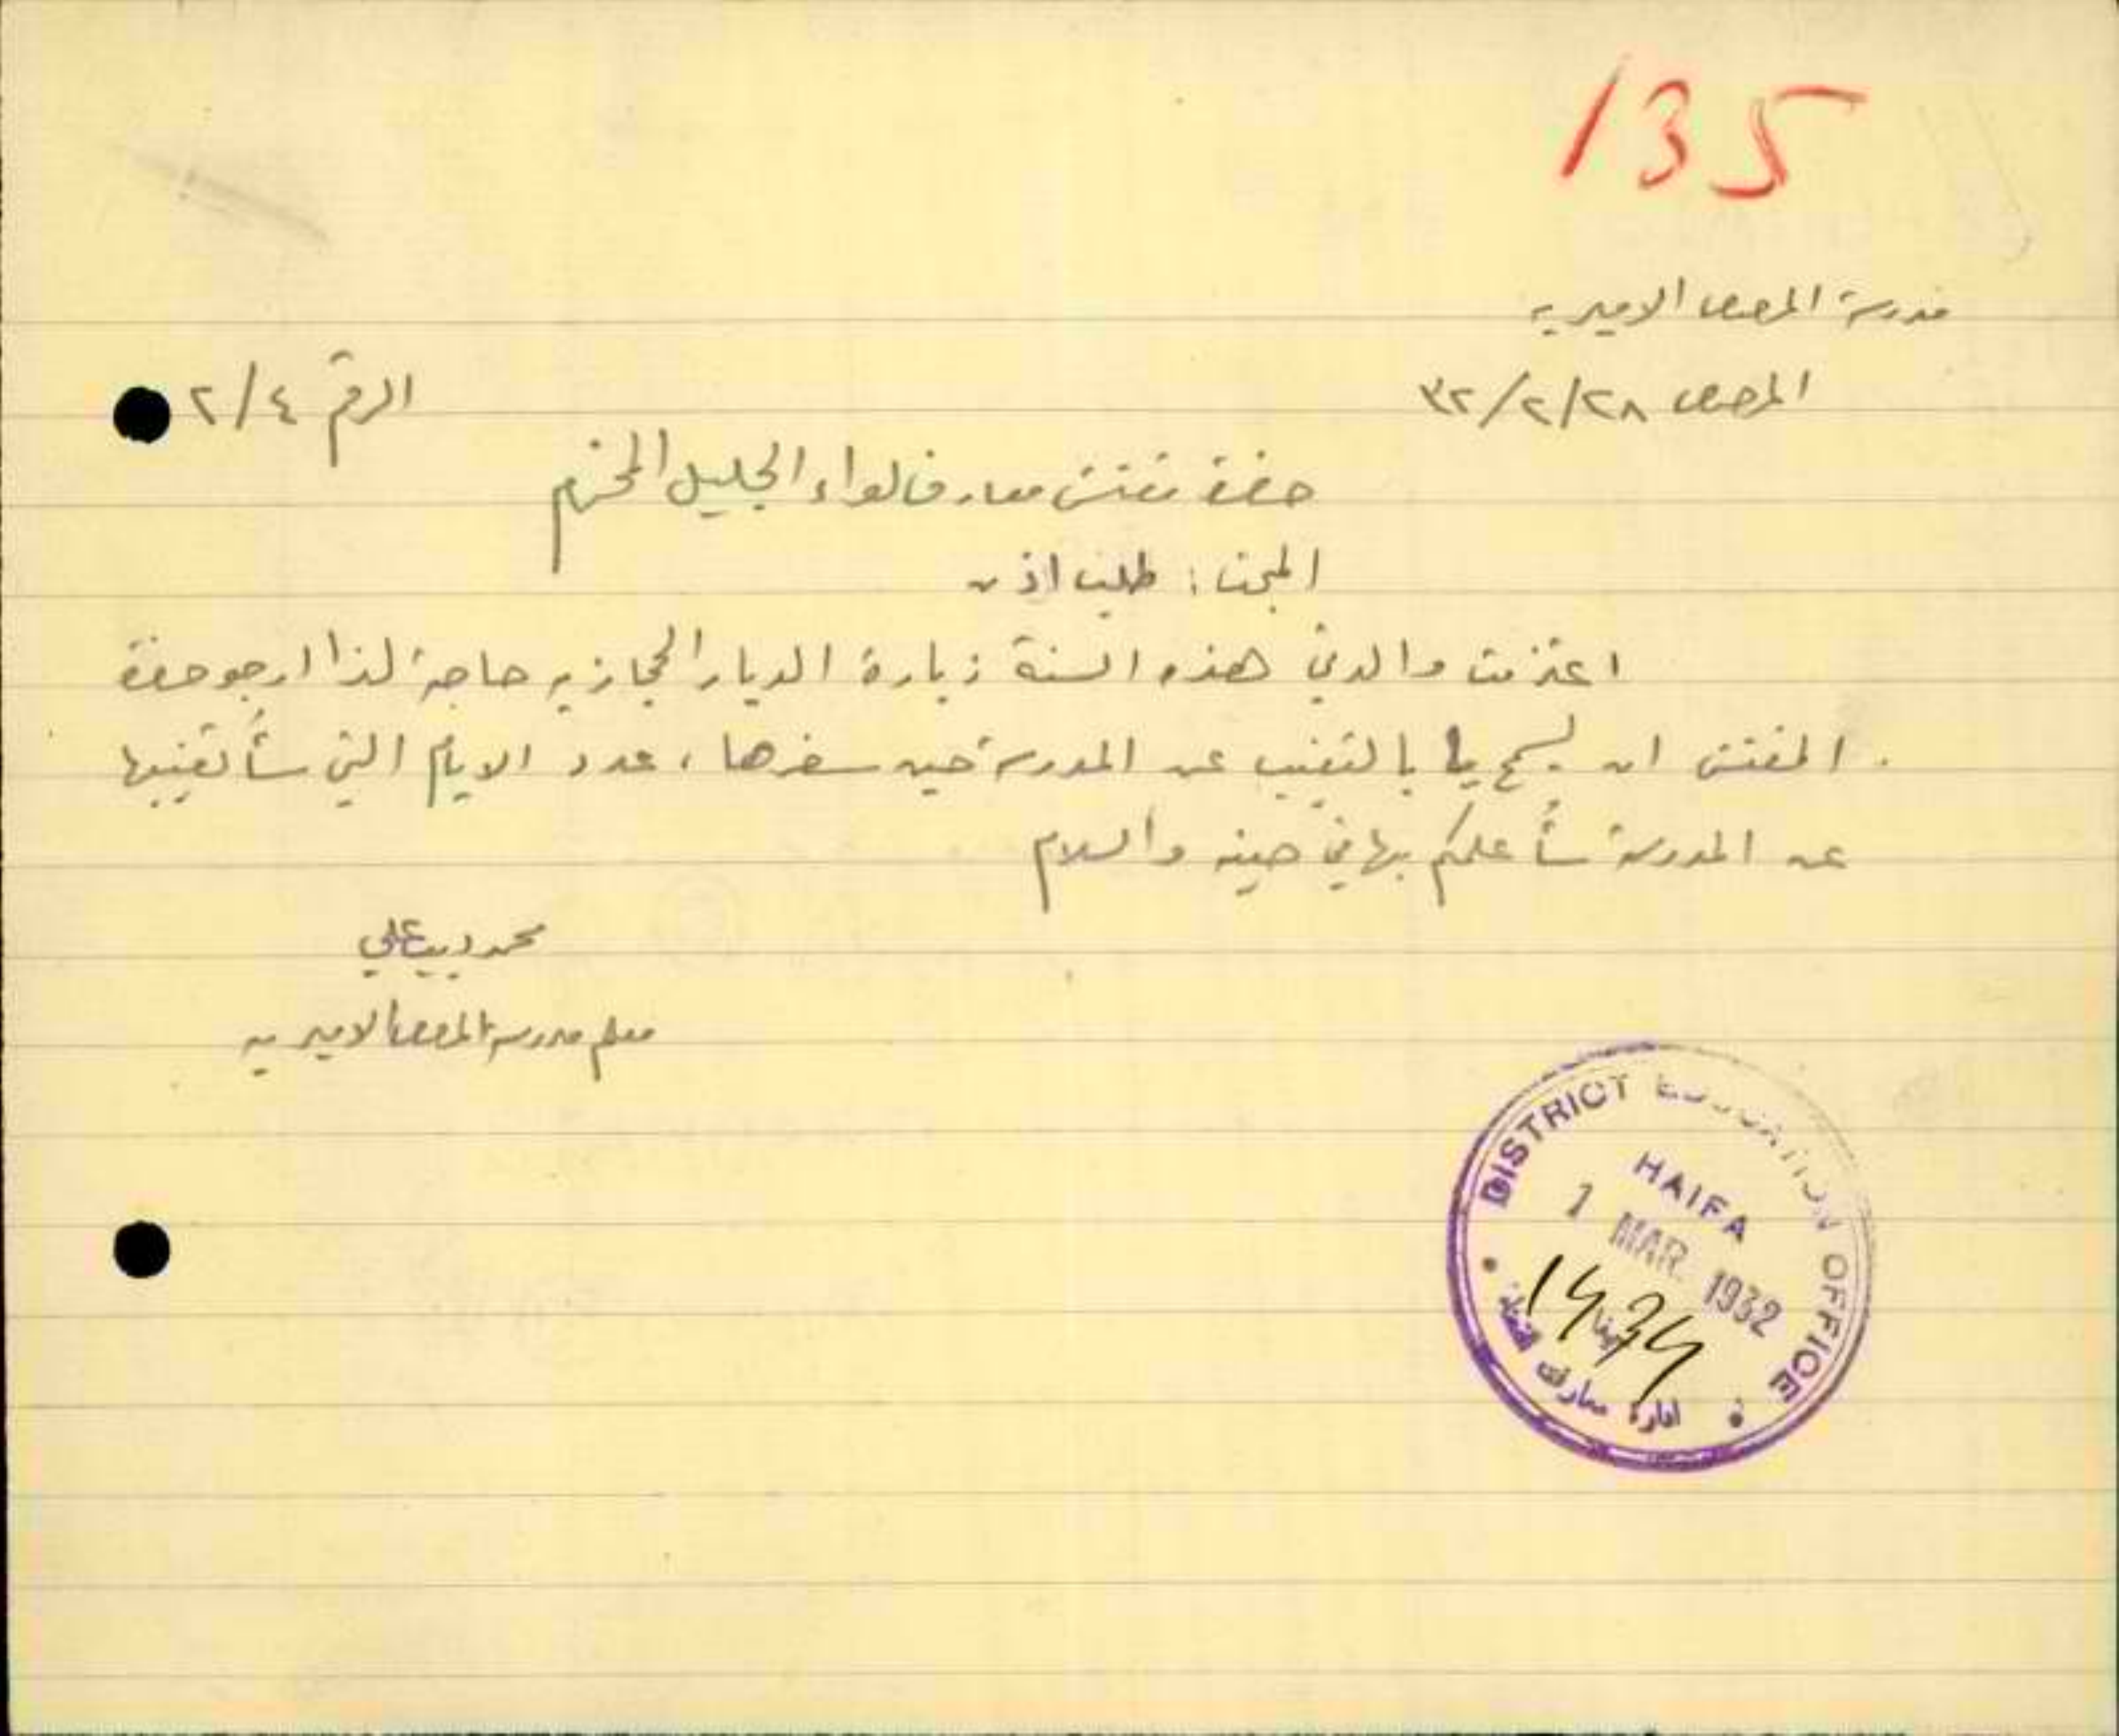 135
مدرسة المصمص الاميرية
المصمص ٢٨/٢/٣٢
الرقم ٢/٤
حضرة مفتش معارف لواء الجليل المحترم
المبحث : طلب اذن
اعتزمت والدتي هذه السنة زيارة الديار الحجازيه حاجة لذا ارجو حضرة
المفتش ان يسمح لي بالتغيب عن المدرسة حين سفرها ، عدد الايام التي سأتغيبها
عن المدرسة سأعلمكم بها في حينه والسلام
محمد علي
معلم مدرسة المصمص الاميريه
DISTRICT EDUCATION OFFICE
HAIFA
1 MAR. 1932
حيفا
ادارة معارف